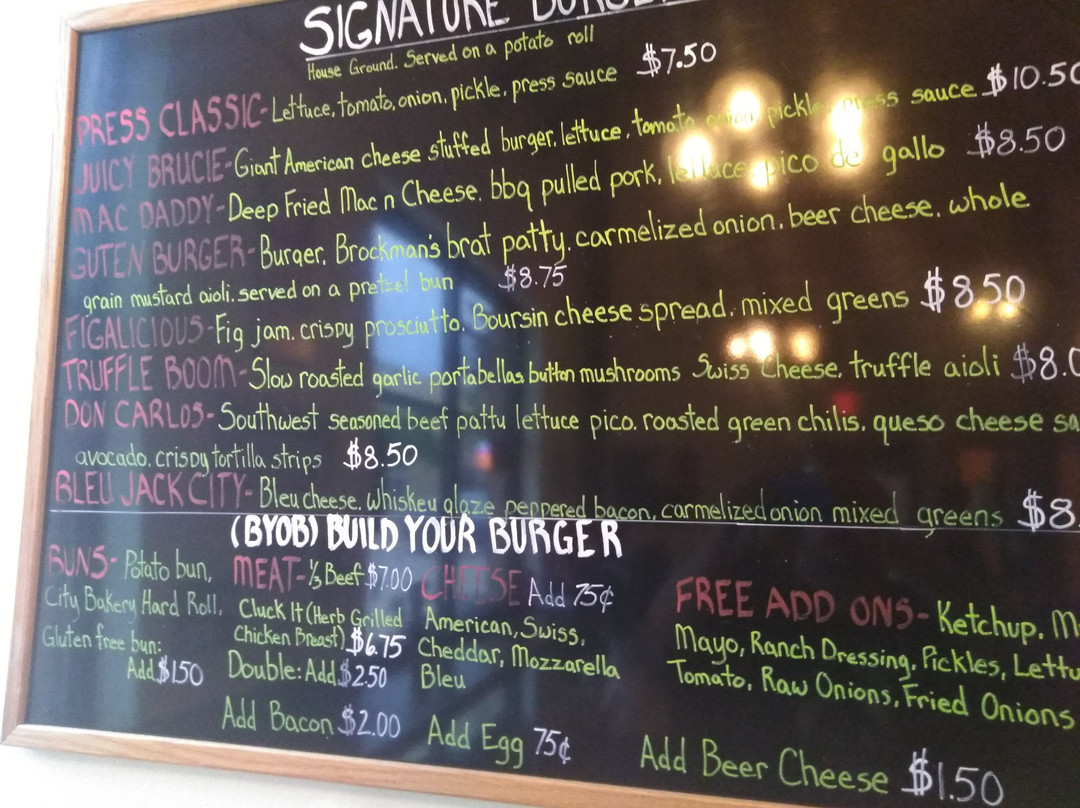 SIGNATURE
House Ground. Served on a potato roll
PRESS CLASSIC- Lettuce, tomato, onion, pickle, press sauce $7.50
JUICY BRUCIE- Giant American cheese stuffed burger, lettuce, tomato onion, pickle, press sauce $10.50
MAC DADDY- Deep Fried Mac n Cheese, bbq pulled pork, lettuce, pico de gallo $8.50
GUTEN BURGER- Burger, Brockman's brat patty, carmelized onion, beer cheese, whole
grain mustard aioli, served on a pretzel bun $8.75
FIGALICIOUS- Fig jam, crispy prosciutto, Boursin cheese spread, mixed greens $8.50
TRUFFLE BOOM- Slow roasted garlic portabellas button mushrooms Swiss Cheese, truffle aioli $8.0
DON CARLOS- Southwest seasoned beef patty lettuce pico, roasted green chilis, queso cheese
avocado, crispy tortilla strips $8.50
BLEU JACK CITY- Bleu cheese, whiskey glaze peppered bacon, carmelized onion mixed greens $8
(BYOB) BUILD YOUR BURGER
BUNS- Potato bun,
City Bakery Hard Roll,
Gluten free bun:
Add $1.50
MEAT- 1/3 Beef $7.00
Cluck It (Herb Grilled
Chicken Breast) $6.75
Double: Add $2.50
Add Bacon $2.00
CHEESE Add 75¢
American, Swiss,
Cheddar, Mozzarella
Bleu
Add Egg 75¢
FREE ADD ONS- Ketchup,
Mayo, Ranch Dressing, Pickles,
Tomato, Raw Onions, Fried Onions
Add Beer Cheese $1.50